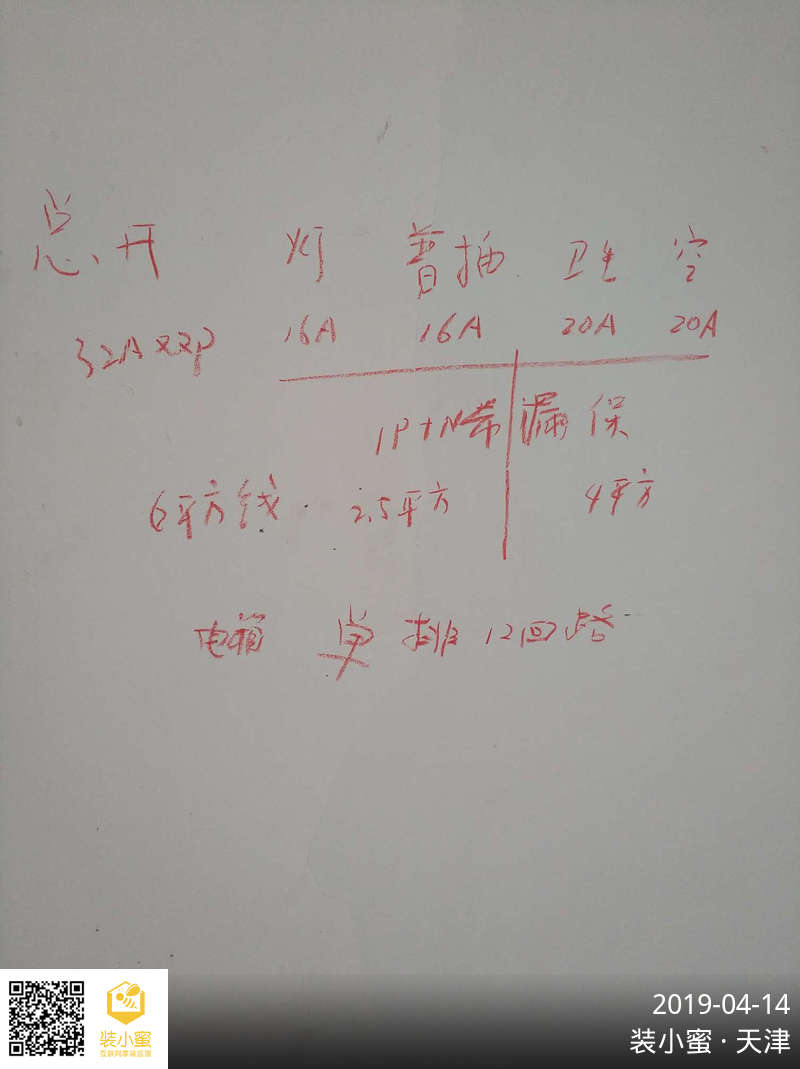 总开 灯 普插 卫生 空
32A双2P 16A 16A 20A 20A
1P+N带漏保
6平方线 2.5平方 4平方
电箱 单排12回路
装小蜜
2019-04-14
装小蜜·天津